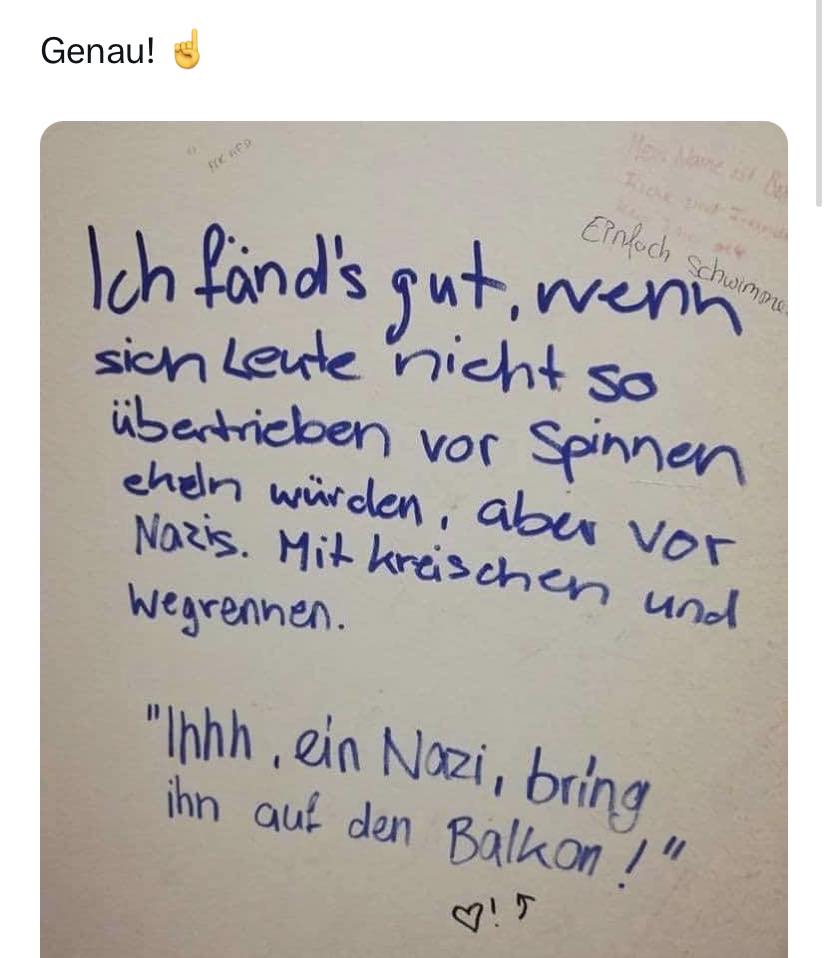 Genau! ☝️
Einfach Schwimme
Ich fänd's gut, wenn
sich Leute nicht so
übertrieben vor Spinnen
ekeln würden, aber vor
Nazis. Mit kreischen und
wegrennen.
"Ihhh, ein Nazi, bring
ihn auf den Balkon!"
♡! ↑